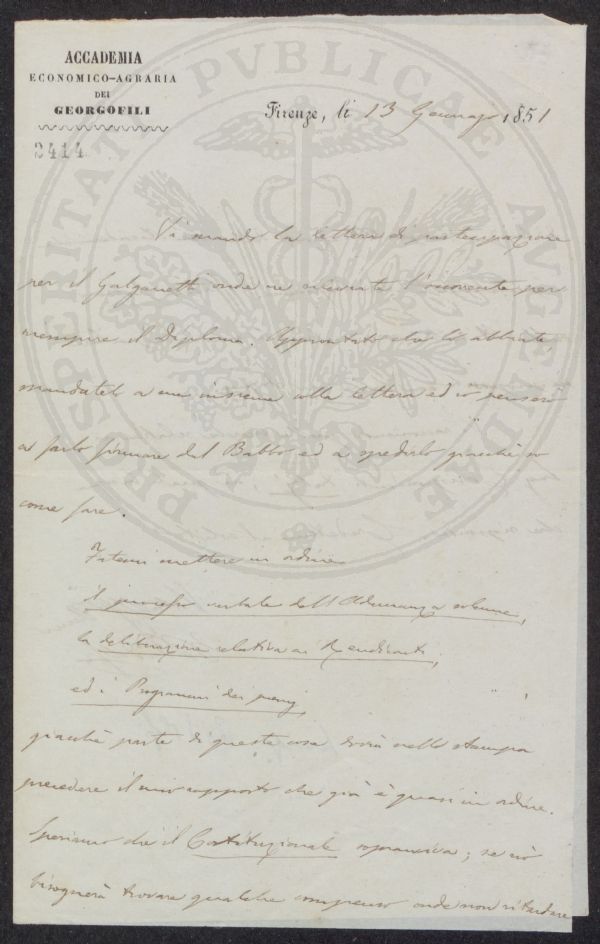 ACCADEMIA
ECONOMICO-AGRARIA
DEI
GEORGOFILI
2414
PROSPERITATI PVBLICAE AVGENDAE
Firenze, li 13 Gennajo 1851
Vi mando la lettera di partecipazione
per il Galganetti onde ne caviate l'occorrente per
riempire il Diploma. Appena tutto che lo abbiate,
mandatelo a me insieme alla lettera ed io penserò
a farlo firmare dal Babbo ed a spedirlo giacchè so
come fare.
Fatemi mettere in ordine
il processo verbale dell'Adunanza solenne,
la deliberazione relativa ai Rendiconti,
ed i Programmi dei premj
giacchè parte di queste cose dovrà nella stampa
precedere il mio rapporto che già è quasi in ordine.
Speriamo che il Costituzionale sopravviva; se nò
bisognerà trovare qualche compenso onde non ritardare